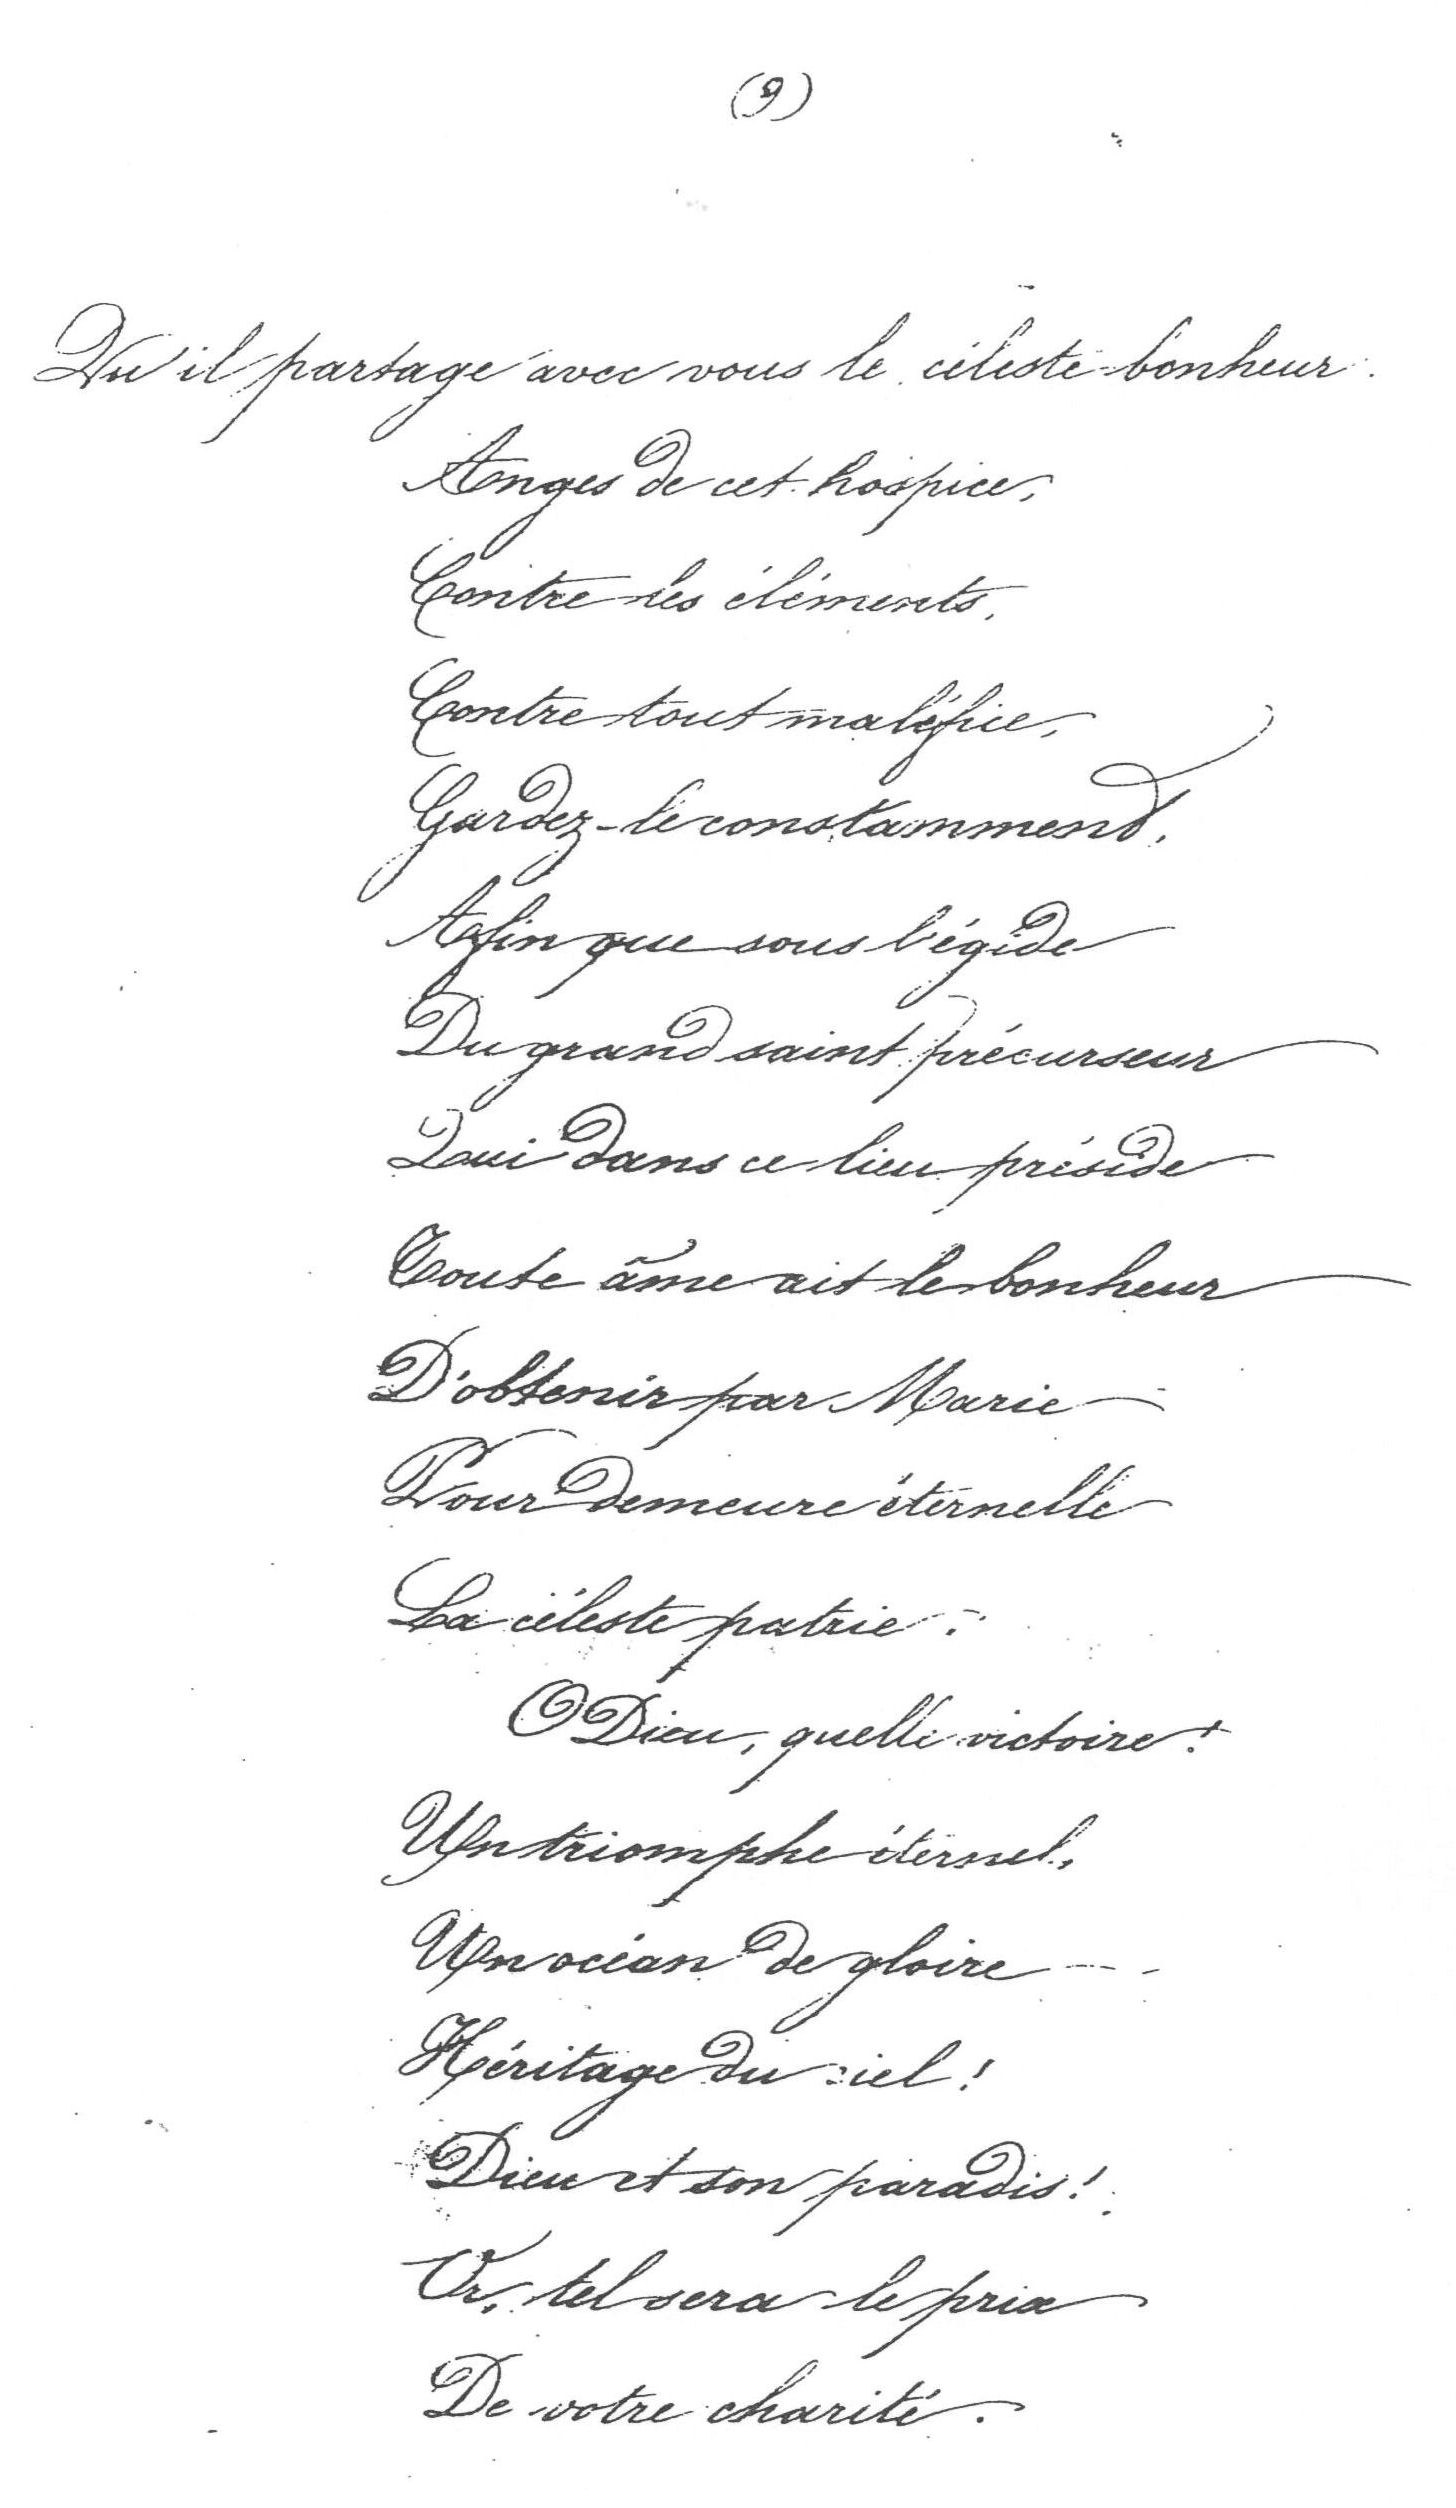 (9)
Qu'il partage avec vous le céleste bonheur.
Anges de cet hospice,
Contre les éléments,
Contre tout maléfice,
Gardez-le constamment,
Afin que sous l'égide
Du grand saint précurseur
Qui dans ce lieu préside
Toute âme ait le bonheur
D'obtenir par Marie
Pour demeure éternelle
La céleste patrie.
O Dieu, quelle victoire!
Un triomphe éternel,
Un océan de gloire
Héritage du ciel!
Dieu et son paradis!
Or, tel sera le prix
De votre charité.